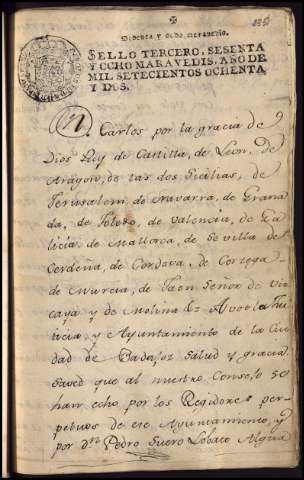 Sesenta y ocho maravedis.
SELLO TERCERO, SESENTA
Y OCHO MARAVEDIS, AÑO DE
MIL SETECIENTOS OCHENTA
Y DOS.
Dn. Carlos por la gracia de
Dios Rey de Castilla, de Leon, de
Aragon, de las dos Sicilias, de
Jerusalem de Navarra, de Grana
da, de Toledo, de Valencia, de Ga
licia, de Mallorca, de Sevilla de
Cerdeña, de Cordova, de Corzega
de Murcia, de Jaen Señor de Viz
caya y de Molina &a. A vos la Jus
ticia, y Ayuntamiento de la Ciu
dad de Badajoz Salud y gracia.
Saved que al nuestro Consejo se
han echo por los Regidores per
petuos de ese Ayuntamiento, y
por dn. Pedro Suero Lobato Algua